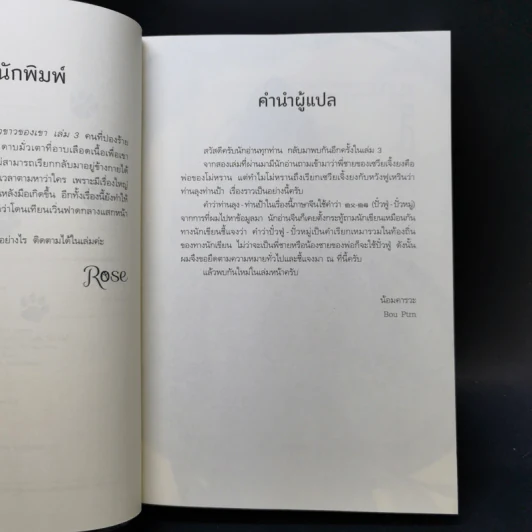 นักพิมพ์
ขาวของเขา เล่ม 3 คนที่ปองร้าย
ดาบมัวเตาที่อาบเลือดเนื้อเพื่อเขา
ม่สามารถเรียกกลับมาอยู่ข้างกายได้
เวลาตามหาว่าใคร เพราะมีเรื่องใหญ่
หลังมือเกิดขึ้น อีกทั้งเรื่องนี้ยังทำให้
ว่าโดนเทียนเวินฟาดกลางแสกหน้า
อย่างไร ติดตามได้ในเล่มค่ะ
Rose
คำนำผู้แปล
สวัสดีครับนักอ่านทุกท่าน กลับมาพบกันอีกครั้งในเล่ม 3
จากสองเล่มที่ผ่านมามีนักอ่านถามเข้ามาว่าพี่ชายของเซวียเจิ้งยงคือ
พ่อของโม่หราน แต่ทำไมโม่หรานถึงเรียกเซวียเจิ้งยงกับหวังฟูเหรินว่า
ท่านลุงท่านป้า เรื่องราวเป็นอย่างนี้ครับ
คำว่าท่านลุง-ท่านป้าในเรื่องนี้ภาษาจีนใช้คำว่า (ปั๋วฟู่-ปั๋วหมู่)
จากการที่ผมไปหาข้อมูลมา นักอ่านจีนก็เคยตั้งกระทู้ถามนักเขียนเหมือนกัน
ทางนักเขียนชี้แจงว่า คำว่าปั๋วฟู่-ปั๋วหมู่เป็นคำเรียกเหมารวมในท้องถิ่น
ของทางนักเขียน ไม่ว่าจะเป็นพี่ชายหรือน้องชายของพ่อก็จะใช้ปั๋วฟู่ ดังนั้น
ผมจึงขอยึดตามความหมายทั่วไปและชี้แจงมา ณ ที่นี้ครับ
แล้วพบกันใหม่ในเล่มหน้าครับ
น้อมคารวะ
Bou Ptrn